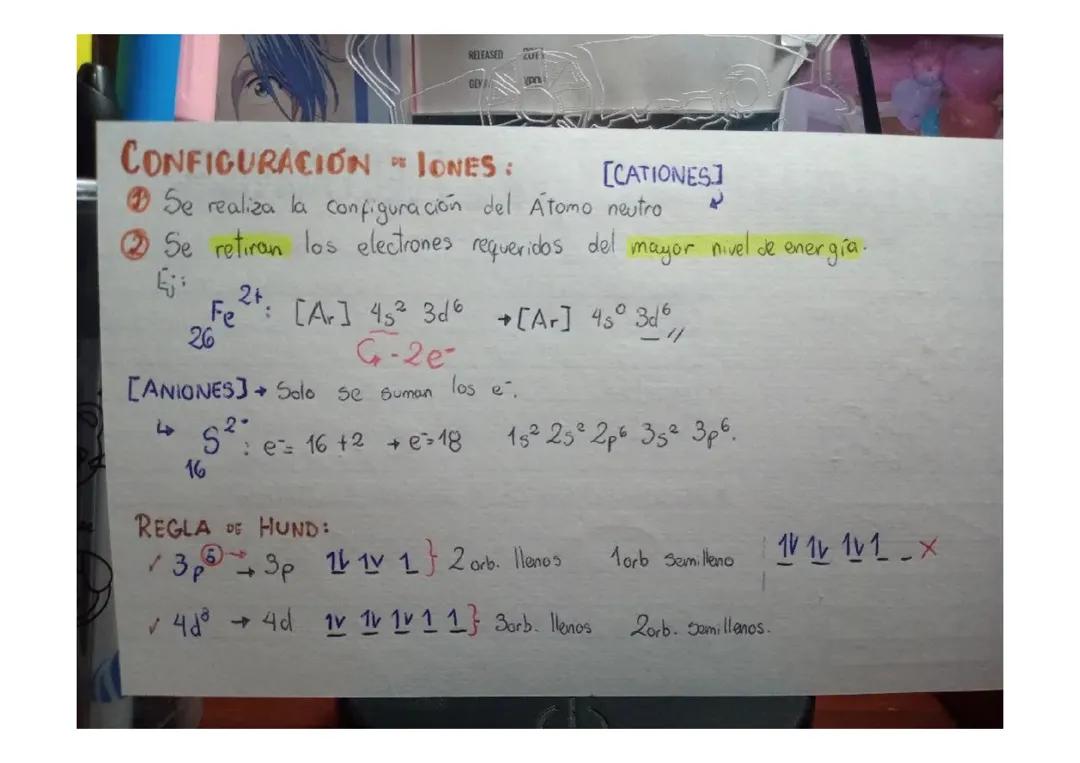 RELEASED
CONFIGURACIÓN DE IONES:
[CATIONES]
① Se realiza la configuración del Átomo neutro
② Se retiran los electrones requeridos del mayor nivel de energía.
Ej:
₂₆Fe²⁺: [Ar] 4s² 3d⁶ → [Ar] 4s⁰ 3d⁶ //
↳ -2e⁻
[ANIONES] → Solo se suman los e⁻.
↳ ₁₆S²⁻: e⁻= 16 +2 → e⁻=18 1s² 2s² 2p⁶ 3s² 3p⁶.
REGLA DE HUND:
✓ 3p⁵ → 3p 1↓ 1v 1 } 2 orb. llenos 1orb semilleno 1v 1v 1v 1 _ ×
✓ 4d⁸ → 4d 1v 1v 1v 1 1 } 3orb. llenos 2orb. semillenos.